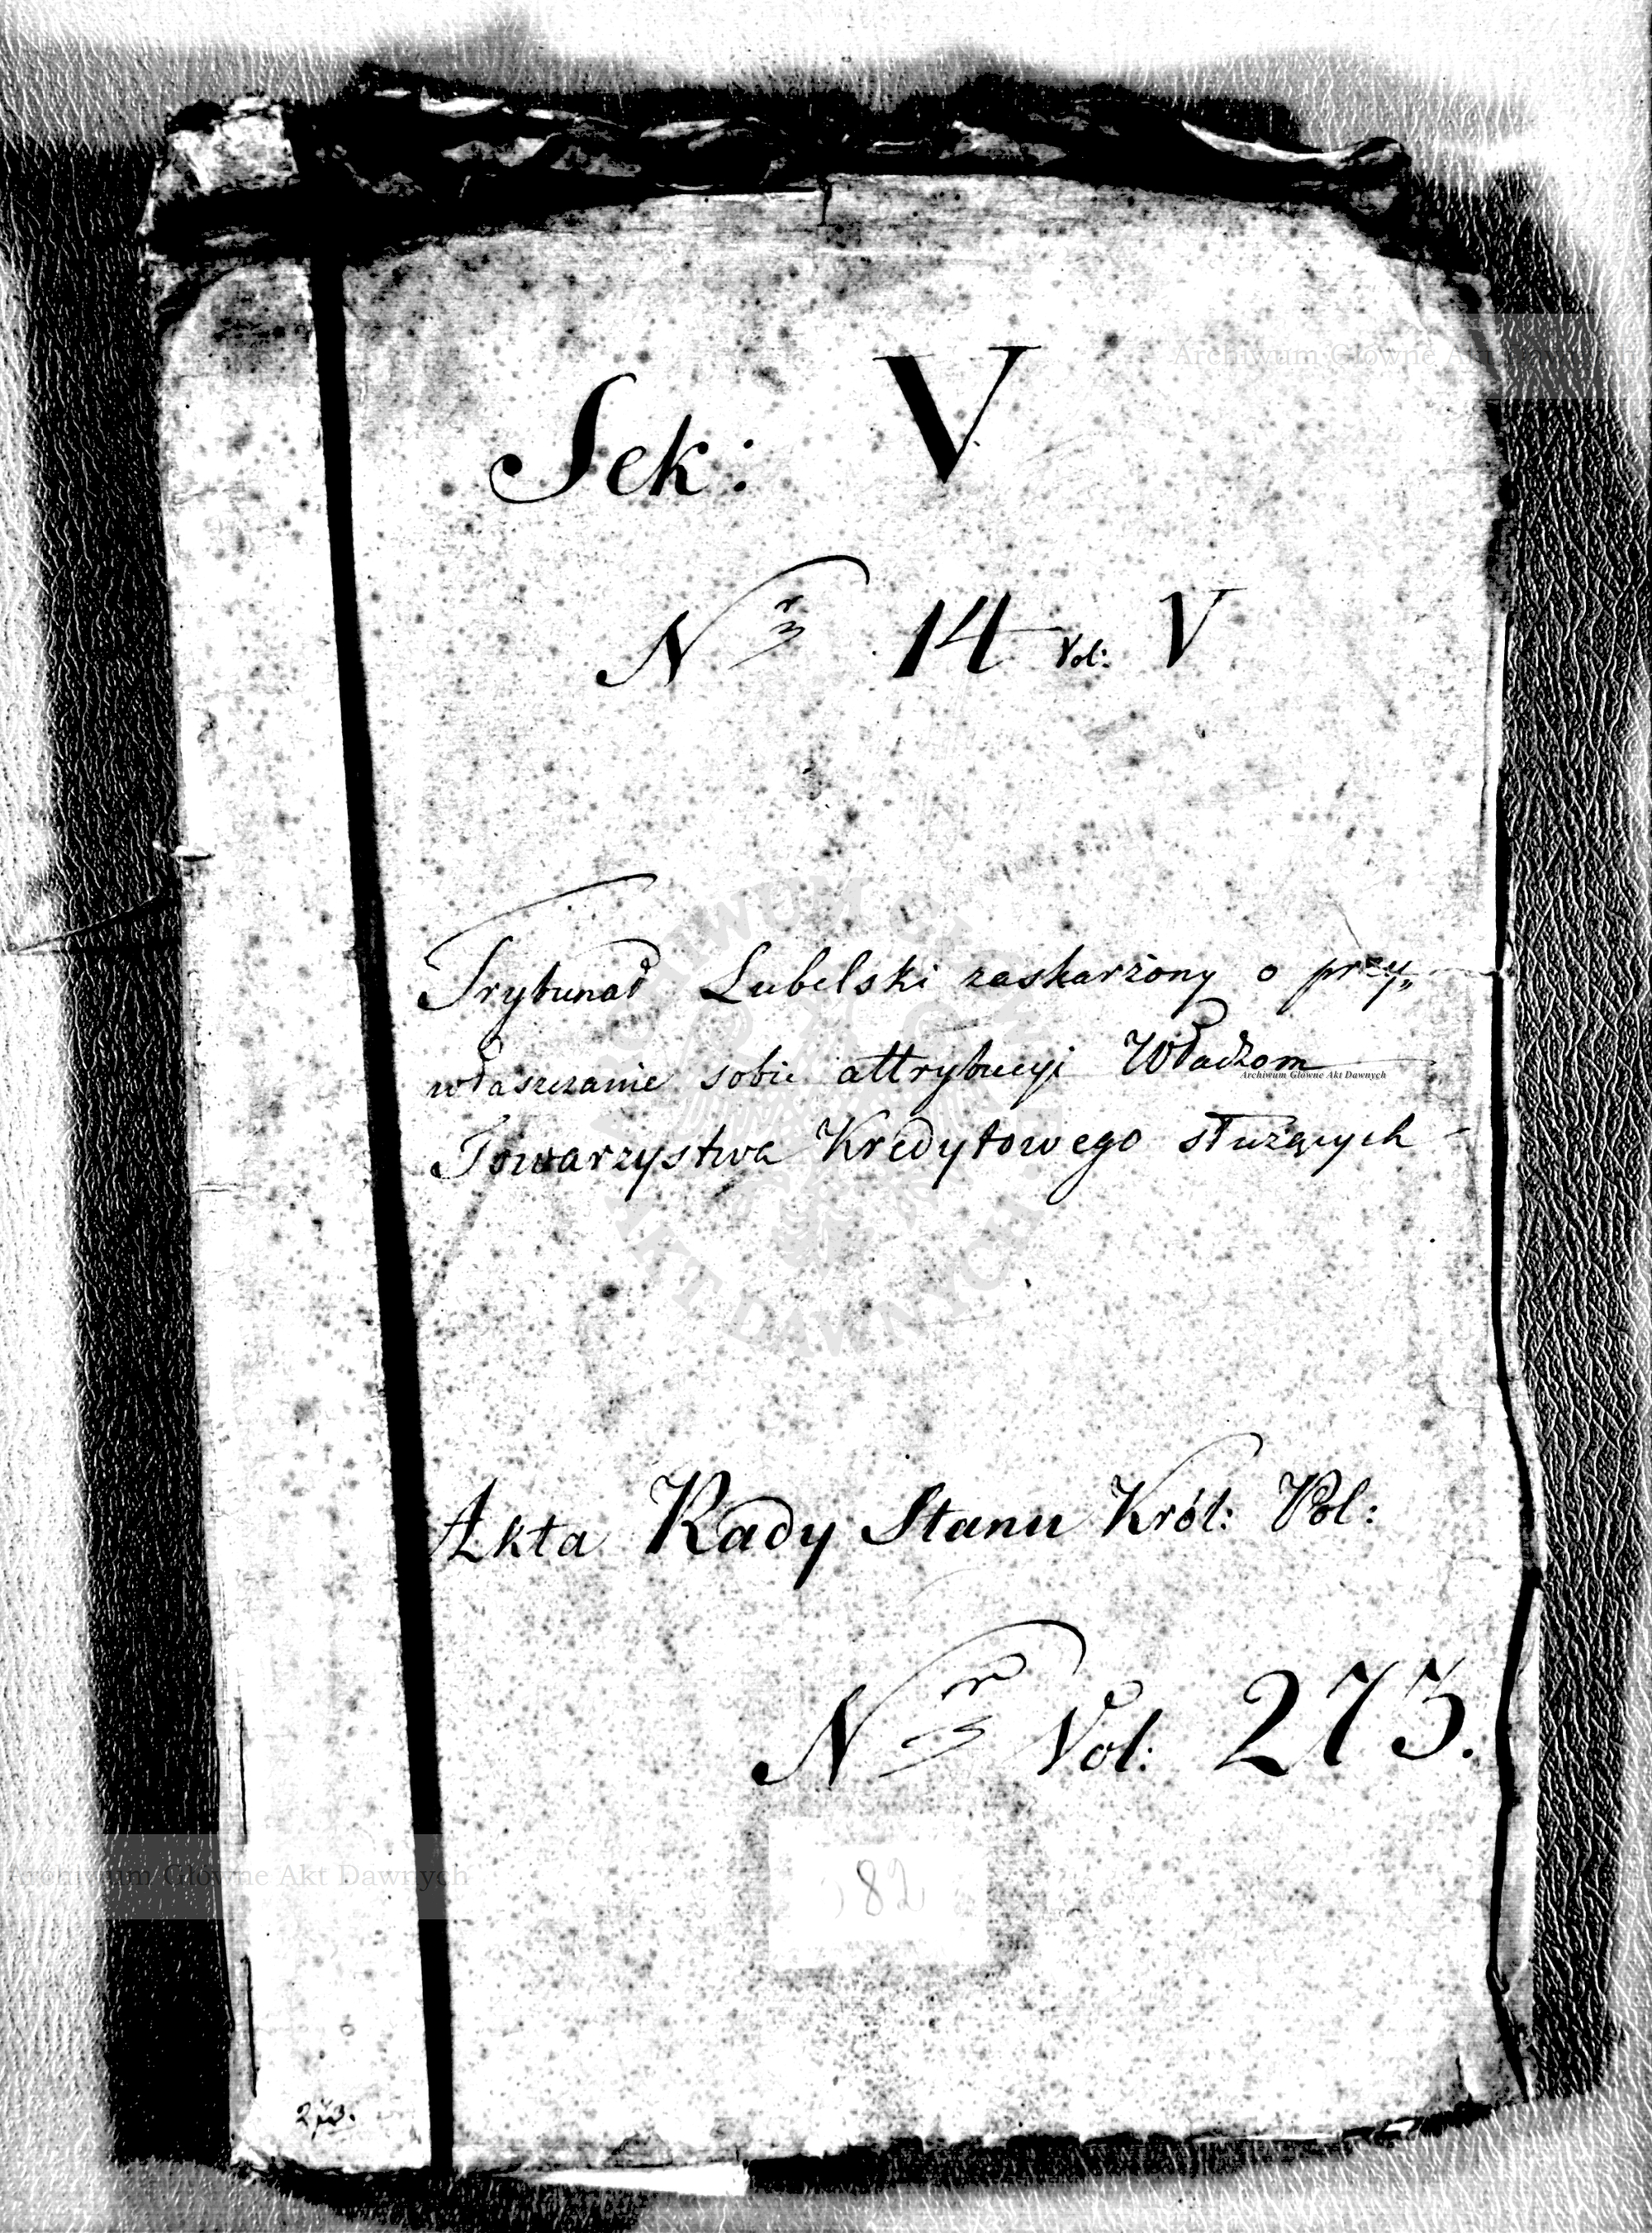 Sek: V
Nr 14 Vol: V
Trybunał Lubelski zaskarżony o przy„
właszczanie sobie attrybucyi Władzom
Towarzystwa Kredytowego służących
Akta Rady Stanu Król: Pol:
Nr Vol: 273.
82
273.
Archiwum Główne Akt Dawnych
Archiwum Główne Akt Dawnych
Archiwum Główne Akt Dawnych
ARCHIWUM GŁÓWNE AKT DAWNYCH